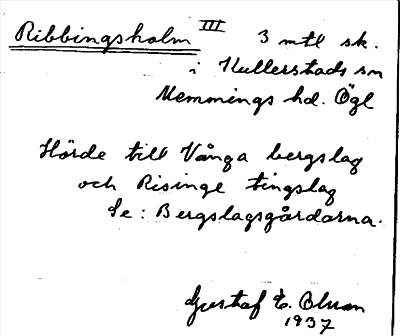 Ribbingsholm III 3 mtl sk.
i Kullerstads sn
Memmings hd. Ögl
Hörde till Vånga bergslag
och Risinge tingslag
Se: Bergslagsgårdarna.
Gustaf E.
1937